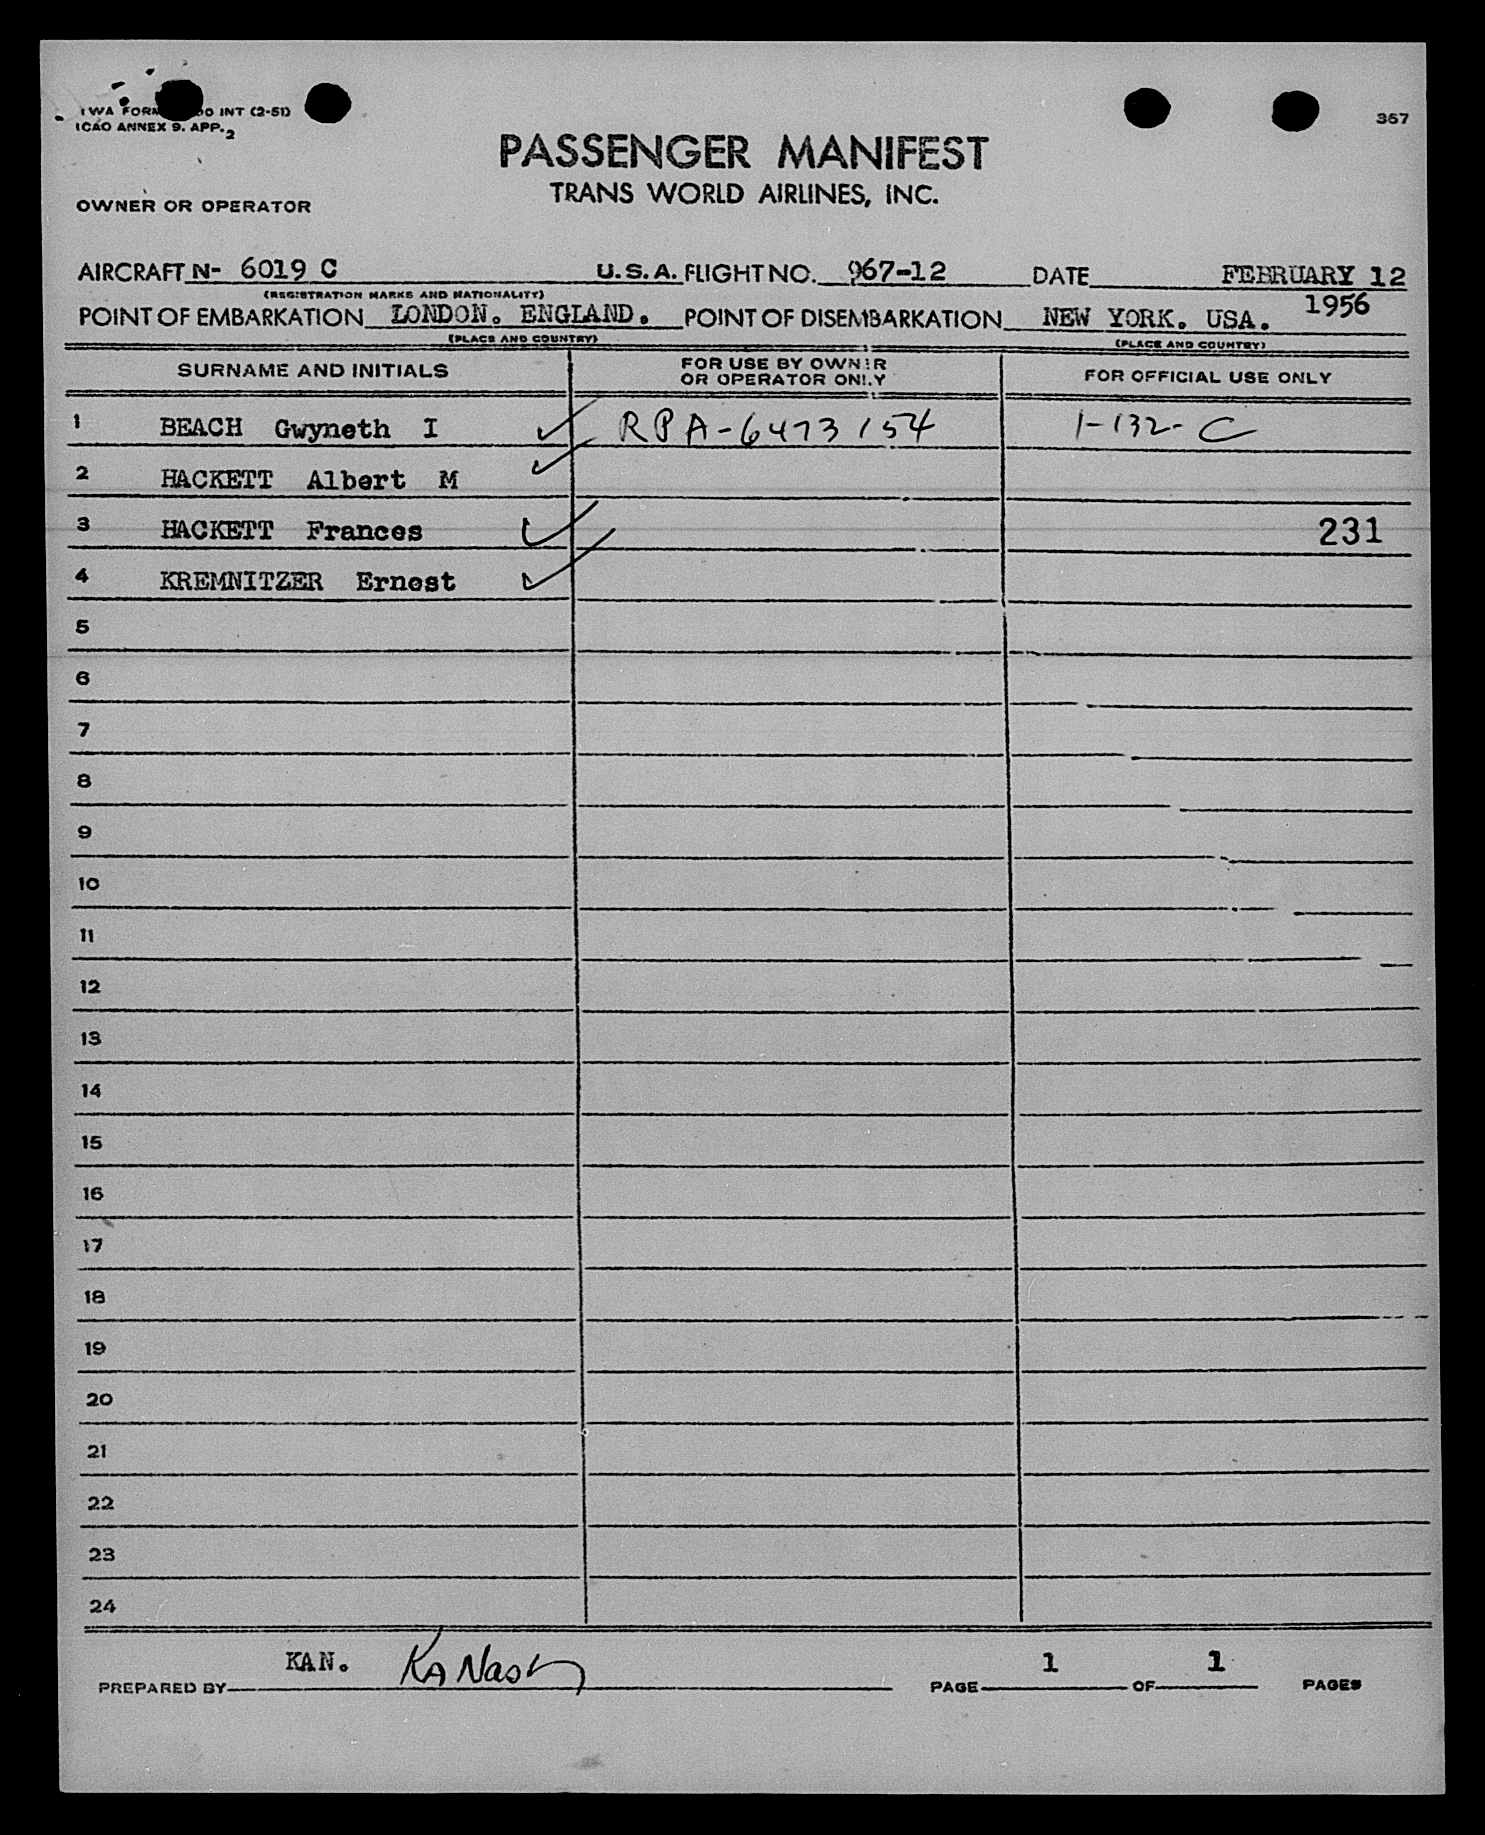 TWA FORM OO INT (2-51)
ICAO ANNEX 9. APP. 2
367
PASSENGER MANIFEST
TRANS WORLD AIRLINES, INC.
OWNER OR OPERATOR
AIRCRAFT N- 6019 C U.S.A. FLIGHT NO. 967-12 DATE FEBRUARY 12
(REGISTRATION MARKS AND NATIONALITY) 1956
POINT OF EMBARKATION LONDON. ENGLAND. POINT OF DISEMBARKATION NEW YORK. USA.
(PLACE AND COUNTRY) (PLACE AND COUNTRY)
SURNAME AND INITIALS FOR USE BY OWNER OR OPERATOR ONLY FOR OFFICIAL USE ONLY
1 BEACH Gwyneth I ✓ RPA-6473154 1-132-C
2 HACKETT Albert M ✓
3 HACKETT Frances ✓ 231
4 KREMNITZER Ernest ✓
5
6
7
8
9
10
11
12
13
14
15
16
17
18
19
20
21
22
23
24
PREPARED BY KAN. KA Nash PAGE 1 OF 1 PAGES